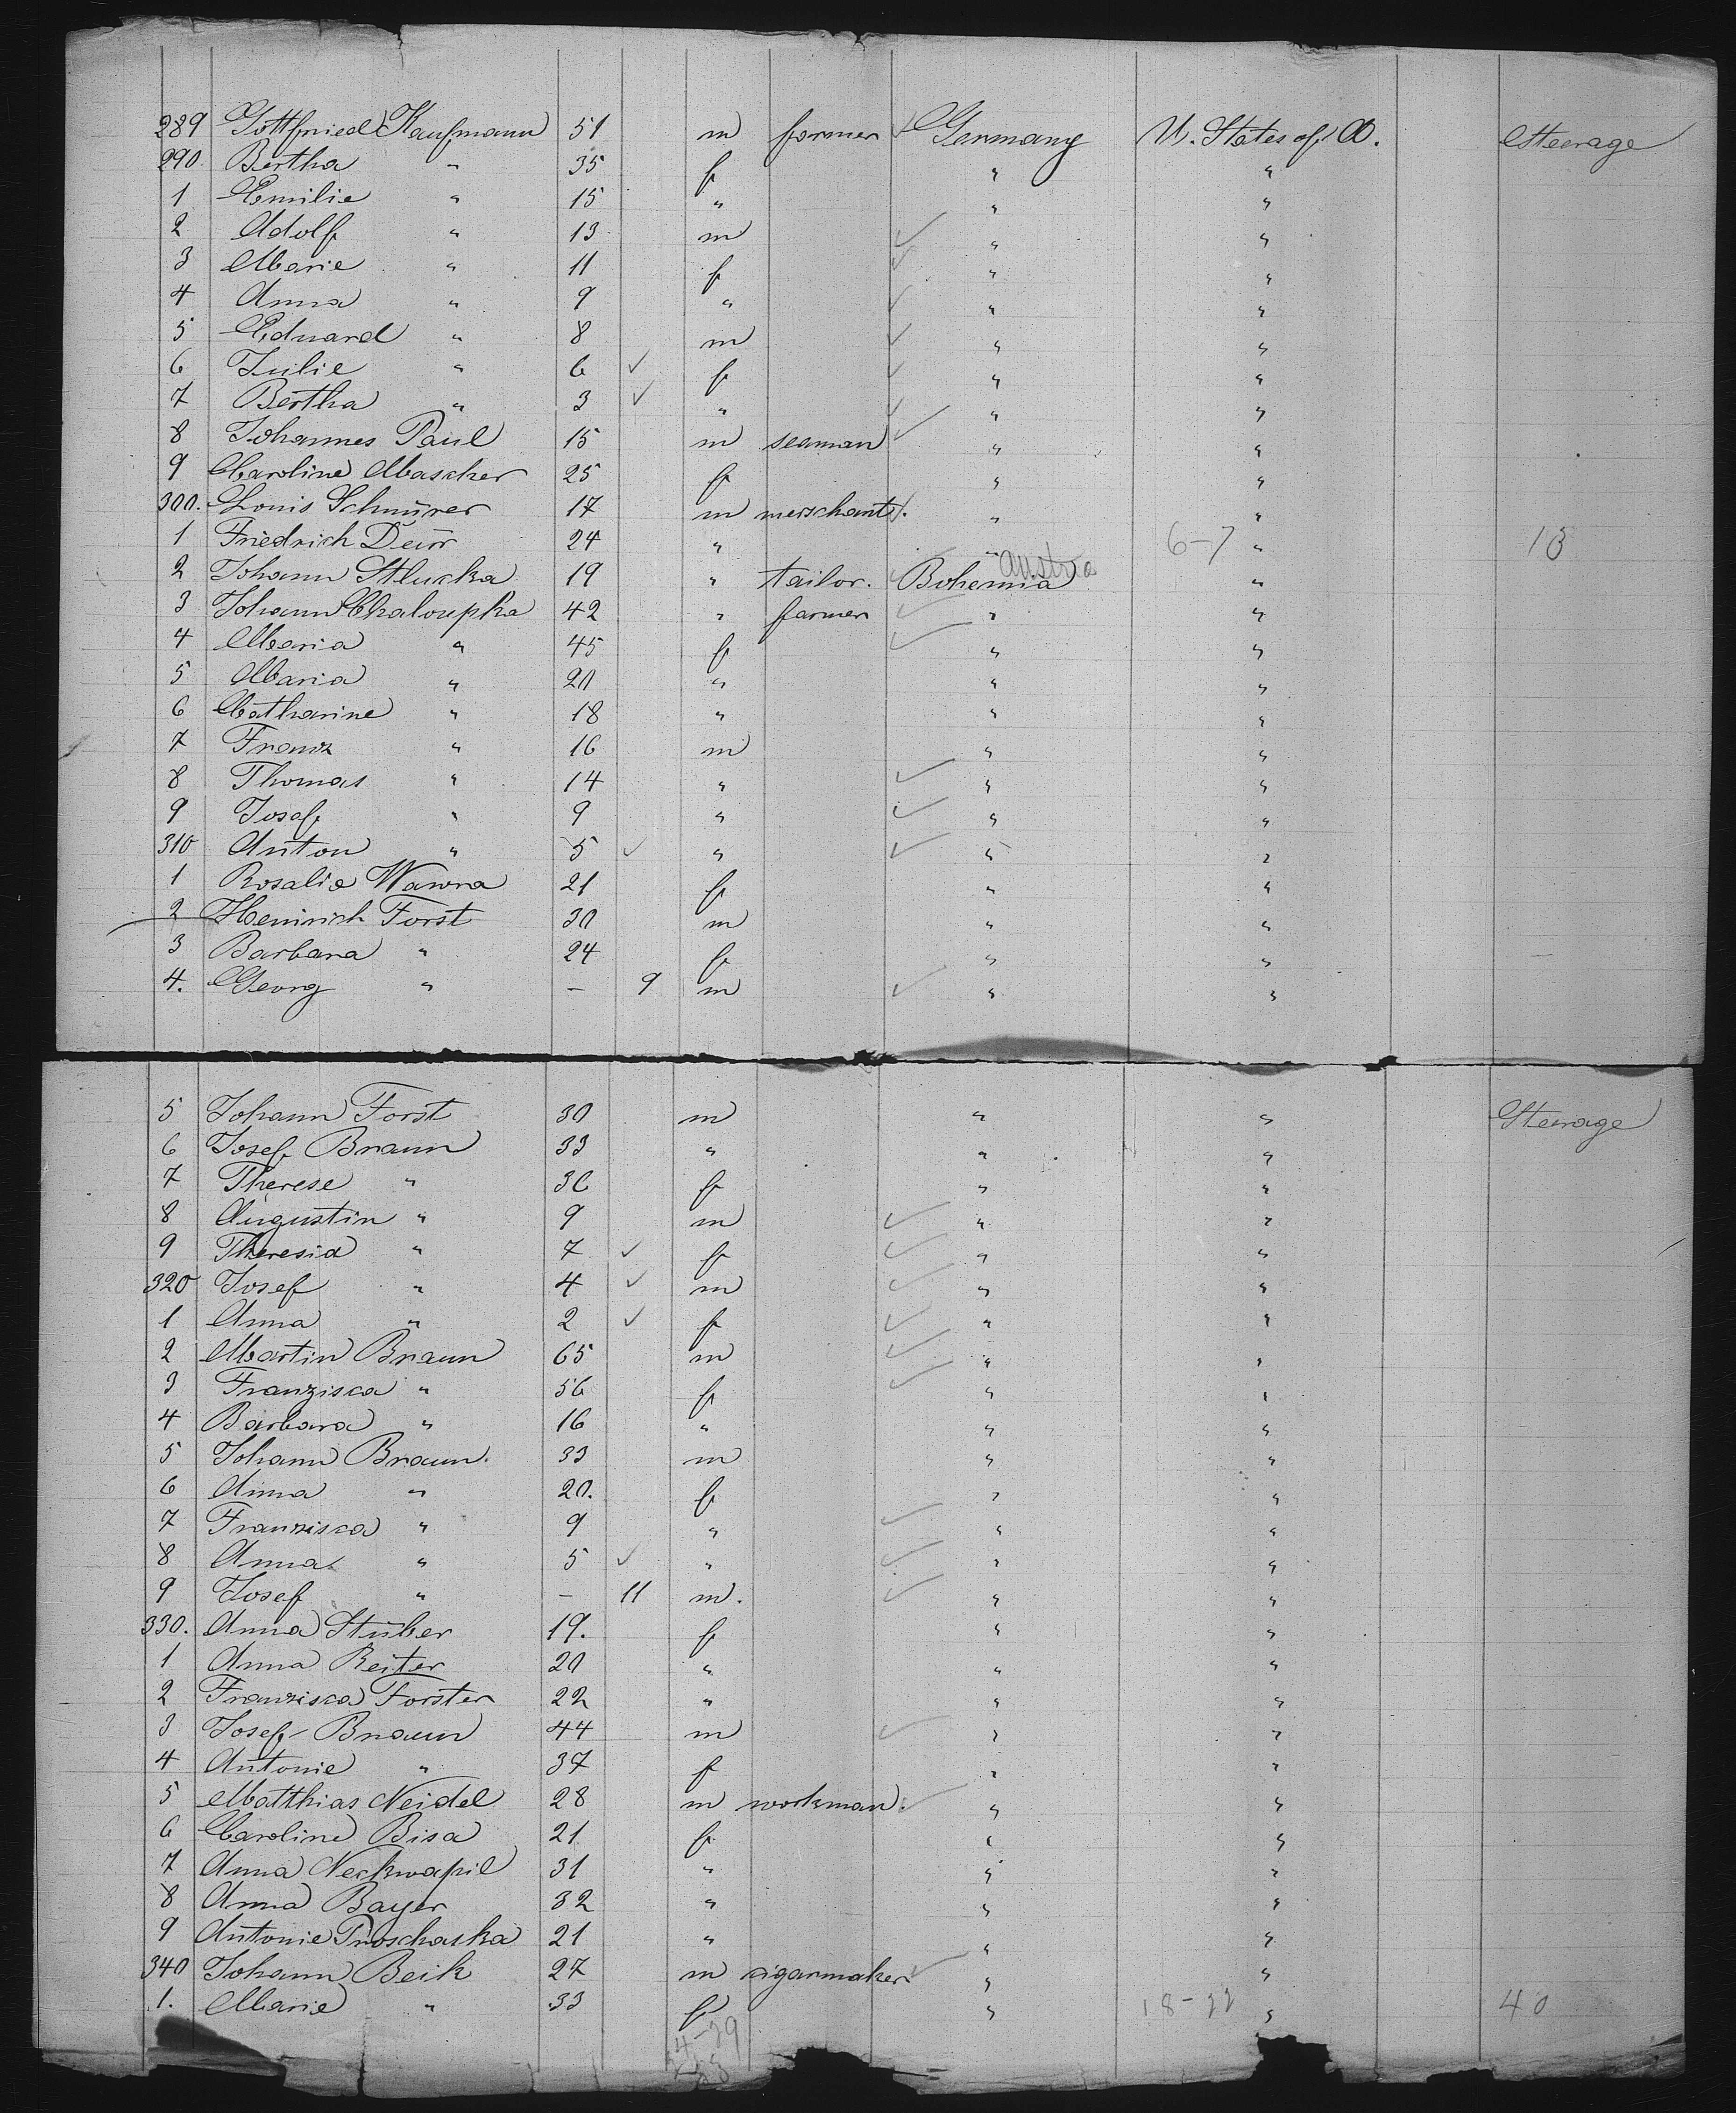 289 Gottfried Kaufmann 51 m farmer ✓ Germany U. States of A. Steerage
290. Bertha " 35 f " "
1 Emilie " 15 " " "
2 Adolf " 13 m ✓ " "
3 Marie " 11 f ✓ " "
4 Anna " 9 " ✓ " "
5 Eduard " 8 m ✓ " "
6 Julie " 6 ✓ f ✓ " "
7 Bertha " 3 ✓ " ✓ " "
8 Johannes Paul 15 m seaman ✓ " "
9 Caroline Mascher 25 f " "
300. Louis Schnürer 17 m merschant ✓. " "
1 Friedrich Deür 24 " " 6-7 " 13
2 Johann Stlucka 19 " tailor. ✓ Bohemia Austria "
3 Johann Chaloupka 42 " farmer ✓ " "
4 Maria " 45 f ✓ " "
5 Maria " 20 " " "
6 Catharine " 18 " " "
7 Franz " 16 m " "
8 Thomas " 14 " ✓ " "
9 Josef " 9 " ✓ " "
310 Anton " 5 ✓ " ✓ " "
1 Rosalie Wawra 21 f " "
2 Heinrich Forst 30 m " "
3 Barbara " 24 f " "
4. Georg " — 9 m ✓ " "
5 Johann Forst 30 m " " Steerage
6 Josef Braun 33 " " "
7 Therese " 36 f " "
8 Augustin " 9 m ✓ " "
9 Theresia " 7 ✓ f ✓ " "
320 Josef " 4 ✓ m ✓ " "
1 Anna " 2 ✓ f ✓ " "
2 Martin Braun 65 m ✓ " "
3 Franzisca " 56 f ✓ " "
4 Barbara " 16 " " "
5 Johann Braun. 33 m " "
6 Anna " 20. f " "
7 Franzisca " 9 " ✓ " "
8 Anna " 5 ✓ " ✓ " "
9 Josef " — 11 m. ✓ " "
330. Anna Stüber 19. f " "
1 Anna Reiter 20 " " "
2 Franzisca Forster 22 " " "
3 Josef Braun 44 m ✓ " "
4 Antonie " 37 f " "
5 Matthias Neidel 28 m workman. ✓ " "
6 Caroline Bisa 21 f " "
7 Anna Neckwapil 31 " " "
8 Anna Bayer 32 " " "
9 Antonie Proschaska 21 " " "
340 Johann Beik 27 m cigarmaker ✓ " "
1. Marie " 33 f " 18-22 " 40